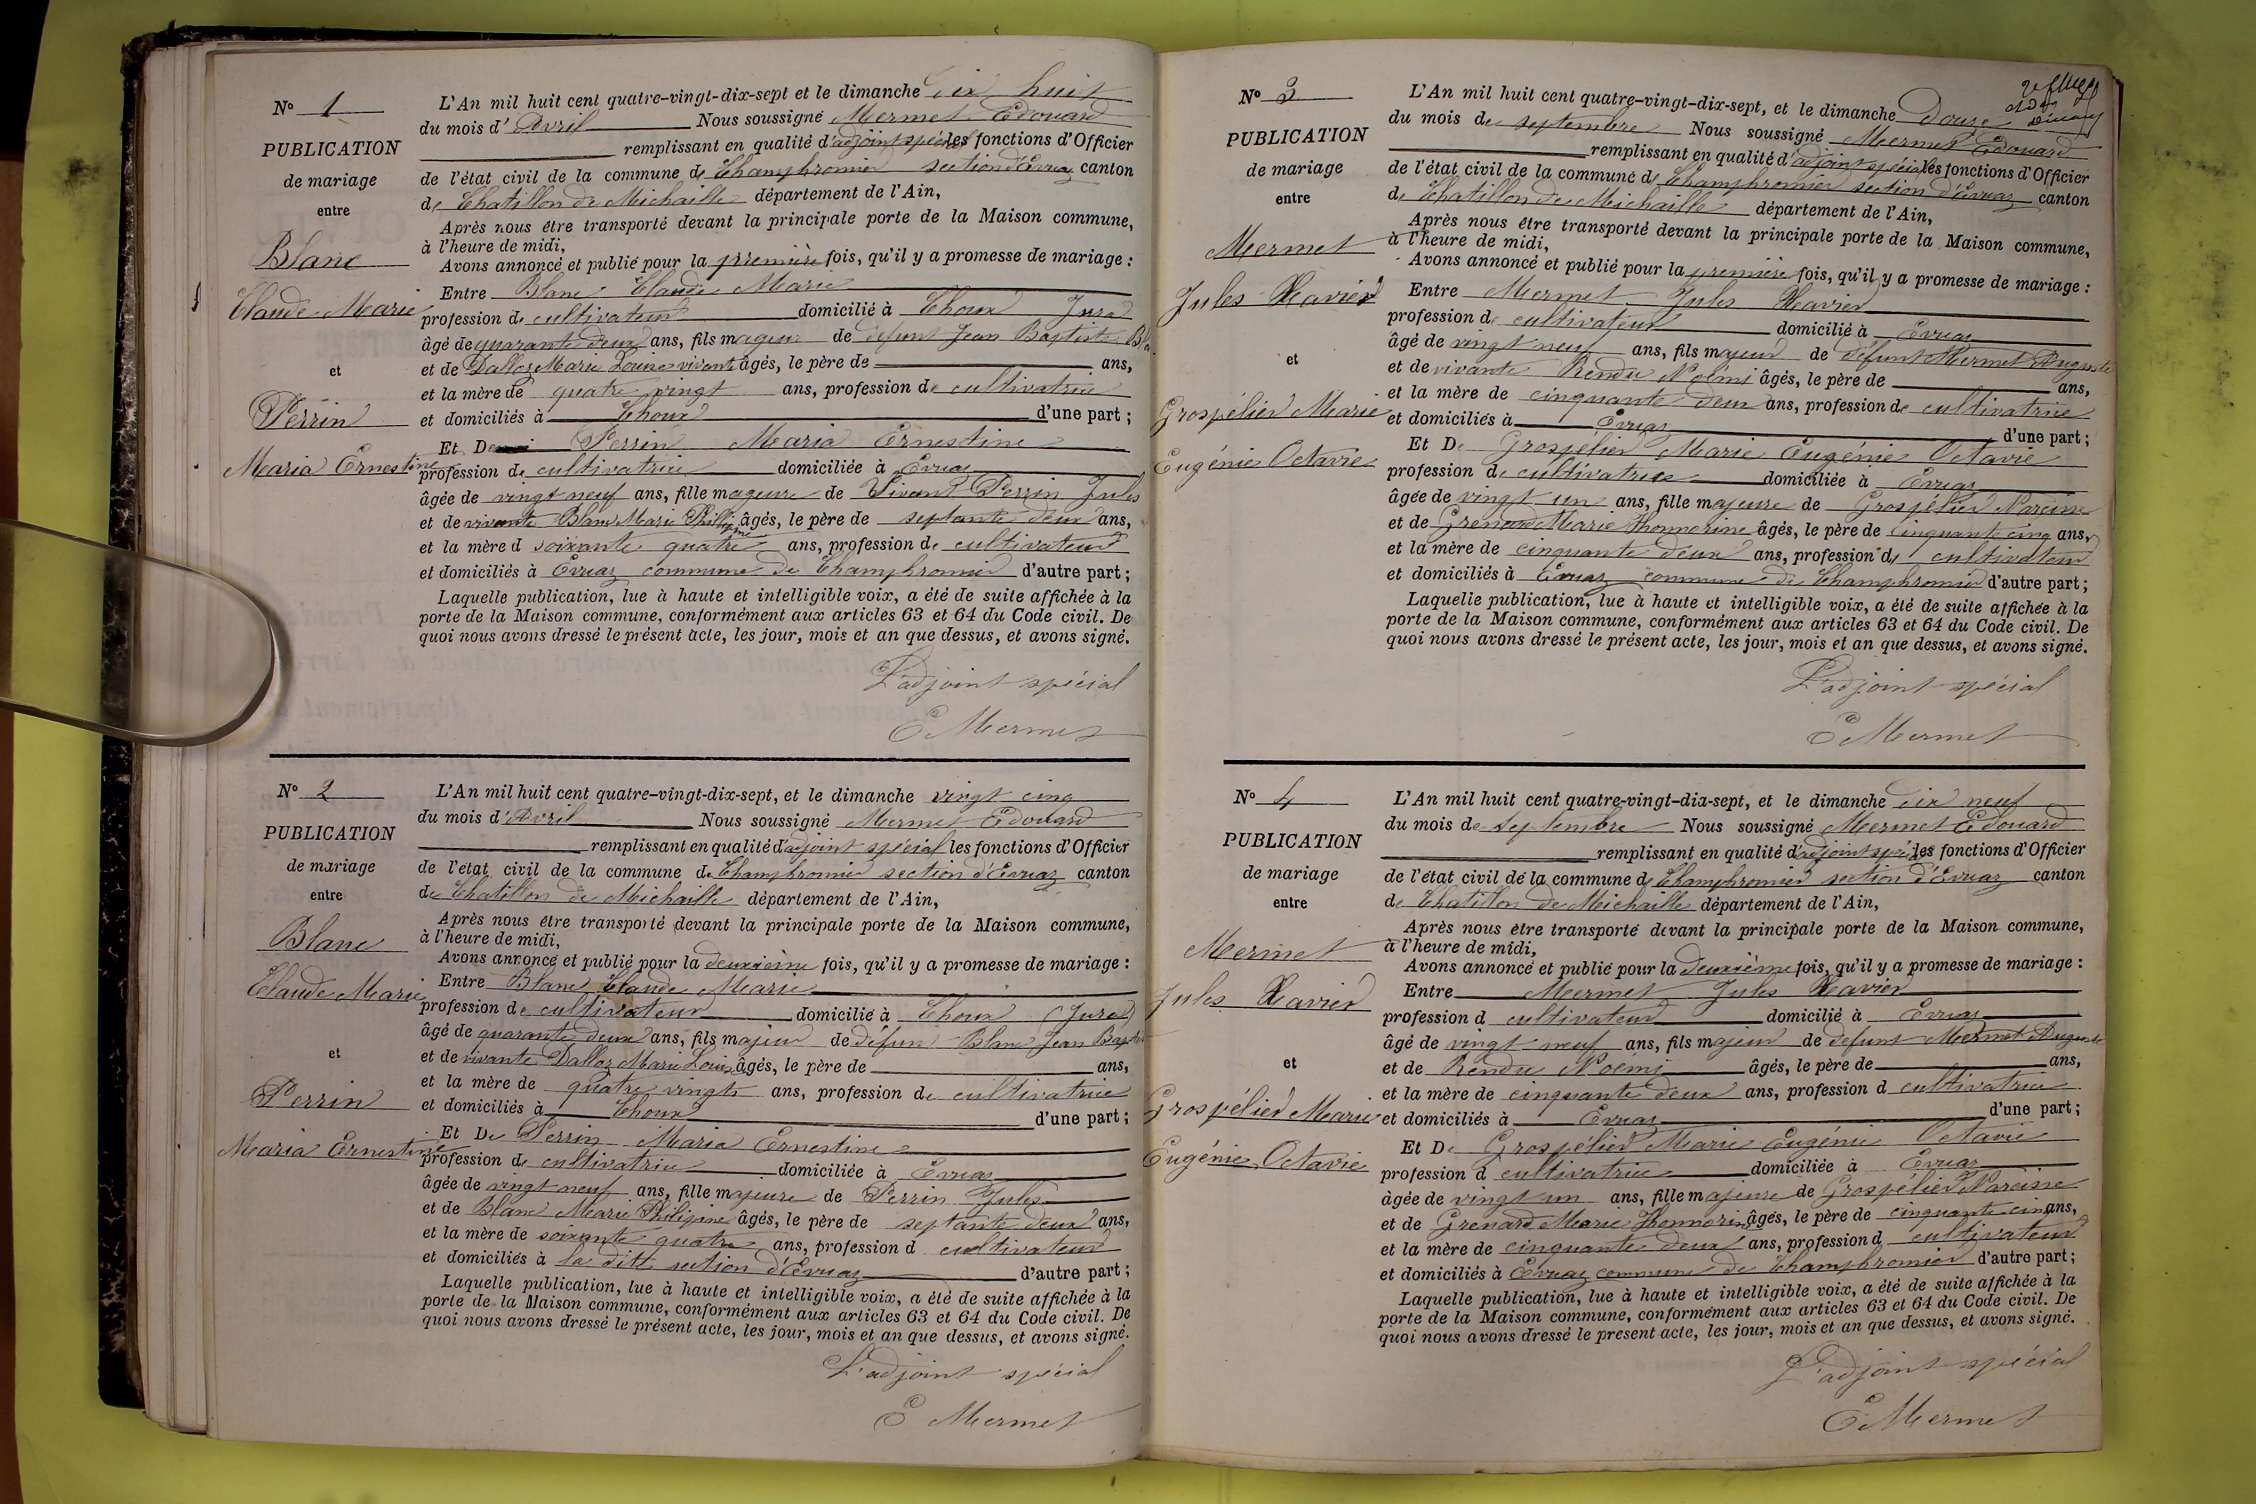 N° 1
PUBLICATION
de mariage
entre
Blanc
Claude Marie
et
Perrin
Maria Ernestine
L'An mil huit cent quatre-vingt-dix-sept et le dimanche dix huit
du mois d'Avril Nous soussigné Mermet Edouard
remplissant en qualité d'adjoint spécial les fonctions d'Officier
de l'état civil de la commune de Champfromier section d'Evuaz canton
de Chatillon de Michaille département de l'Ain,
Après nous être transporté devant la principale porte de la Maison commune,
à l'heure de midi,
Avons annoncé et publié pour la première fois, qu'il y a promesse de mariage :
Entre Blanc Claude Marie
profession de cultivateur domicilié à Choux Jura
âgé de quarante deux ans, fils mageur de défunt Jean Baptiste
et de Dalloz Marie Louise vivante âgés, le père de ans,
et la mère de quatre vingt ans, profession de cultivatrice
et domiciliés à Choux d'une part ;
Et De Perrin Maria Ernestine
profession de cultivatrice domiciliée à Evuaz
âgée de vingt neuf ans, fille mageure de Vivant Perrin Jules
et de vivante Blanc Marie Philippine âgés, le père de septante deux ans,
et la mère d soixante quatre ans, profession de cultivateur
et domiciliés à Evuaz commune de Champfromier d'autre part ;
Laquelle publication, lue à haute et intelligible voix, a été de suite affichée à la
porte de la Maison commune, conformément aux articles 63 et 64 du Code civil. De
quoi nous avons dressé le présent acte, les jour, mois et an que dessus, et avons signé.
L'adjoint spécial
E Mermet
N° 2
PUBLICATION
de mariage
entre
Blanc
Claude Marie
et
Perrin
Maria Ernestine
L'An mil huit cent quatre-vingt-dix-sept, et le dimanche vingt cinq
du mois d'Avril Nous soussigné Mermet Edouard
remplissant en qualité d'adjoint spécial les fonctions d'Officier
de l'état civil de la commune de Champfromier section d'Evuaz canton
de Chatillon de Michaille département de l'Ain,
Après nous être transporté devant la principale porte de la Maison commune,
à l'heure de midi,
Avons annoncé et publié pour la deuxième fois, qu'il y a promesse de mariage :
Entre Blanc Claude Marie
profession de cultivateur domicilié à Choux (Jura)
âgé de quarante deux ans, fils majeur de défun Blanc Jean
et de vivante Dalloz Marie Louise âgés, le père de ans,
et la mère de quatre vingt ans, profession de cultivatrice
et domiciliés à Choux d'une part ;
Et De Perrin Maria Ernestine
profession de cultivatrice domiciliée à Evuaz
âgée de vingt neuf ans, fille majeure de Perrin Jules
et de Blanc Marie Philipine âgés, le père de septante deux ans,
et la mère de soixante quatre ans, profession d cultivateur
et domiciliés à la dite section d'Evuaz d'autre part ;
Laquelle publication, lue à haute et intelligible voix, a été de suite affichée à la
porte de la Maison commune, conformément aux articles 63 et 64 du Code civil. De
quoi nous avons dressé le présent acte, les jour, mois et an que dessus, et avons signé.
L'adjoint spécial
E Mermet
N° 3
PUBLICATION
de mariage
entre
Mermet
Jules Xavier
et
Grospélier Marie
Eugénie Octavie
L'An mil huit cent quatre-vingt-dix-sept, et le dimanche douze
du mois de septembre Nous soussigné Mermet Edouard
remplissant en qualité d'adjoint spécial les fonctions d'Officier
de l'état civil de la commune de Champfromier section d'Evuaz canton
de Chatillon de Michaille département de l'Ain,
Après nous être transporté devant la principale porte de la Maison commune,
à l'heure de midi,
Avons annoncé et publié pour la première fois, qu'il y a promesse de mariage :
Entre Mermet Jules Xavier
profession de cultivateur domicilié à Evuaz
âgé de vingt neuf ans, fils majeur de défunt Mermet Auguste
et de vivante Rendu Noémi âgés, le père de ans,
et la mère de cinquante deux ans, profession de cultivatrice
et domiciliés à Evuaz d'une part ;
Et De Grospélier Marie Eugénie Octavie
profession de cultivatrice domiciliée à Evuaz
âgée de vingt un ans, fille majeure de Grospélier Narcisse
et de Grenard Marie Honnorine âgés, le père de cinquante cinq ans,
et la mère de cinquante deux ans, profession de cultivateur
et domiciliés à Evuaz commune de Champfromier d'autre part ;
Laquelle publication, lue à haute et intelligible voix, a été de suite affichée à la
porte de la Maison commune, conformément aux articles 63 et 64 du Code civil. De
quoi nous avons dressé le présent acte, les jour, mois et an que dessus, et avons signé.
L'adjoint spécial
E Mermet
N° 4
PUBLICATION
de mariage
entre
Mermet
Jules Xavier
et
Grospélier Marie
Eugénie Octavie
L'An mil huit cent quatre-vingt-dix-sept, et le dimanche dix neuf
du mois de septembre Nous soussigné Mermet Edouard
remplissant en qualité d'adjoint spécial les fonctions d'Officier
de l'état civil de la commune de Champfromier section d'Evuaz canton
de Chatillon de Michaille département de l'Ain,
Après nous être transporté devant la principale porte de la Maison commune,
à l'heure de midi,
Avons annoncé et publié pour la deuxième fois, qu'il y a promesse de mariage :
Entre Mermet Jules Xavier
profession d cultivateur domicilié à Evuaz
âgé de vingt neuf ans, fils majeur de défunt Mermet Auguste
et de Rendu Noémi âgés, le père de ans,
et la mère de cinquante deux ans, profession d cultivatrice
et domiciliés à Evuaz d'une part ;
Et De Grospélier Marie Eugénie Octavie
profession d cultivatrice domiciliée à Evuaz
âgée de vingt un ans, fille majeure de Grospélier Narcisse
et de Grenard Marie Honnorine âgés, le père de cinquante cinq ans,
et la mère de cinquante deux ans, profession d cultivateur
et domiciliés à Evuaz commune de Champfromier d'autre part ;
Laquelle publication, lue à haute et intelligible voix, a été de suite affichée à la
porte de la Maison commune, conformément aux articles 63 et 64 du Code civil. De
quoi nous avons dressé le présent acte, les jour, mois et an que dessus, et avons signé.
L'adjoint spécial
E Mermet